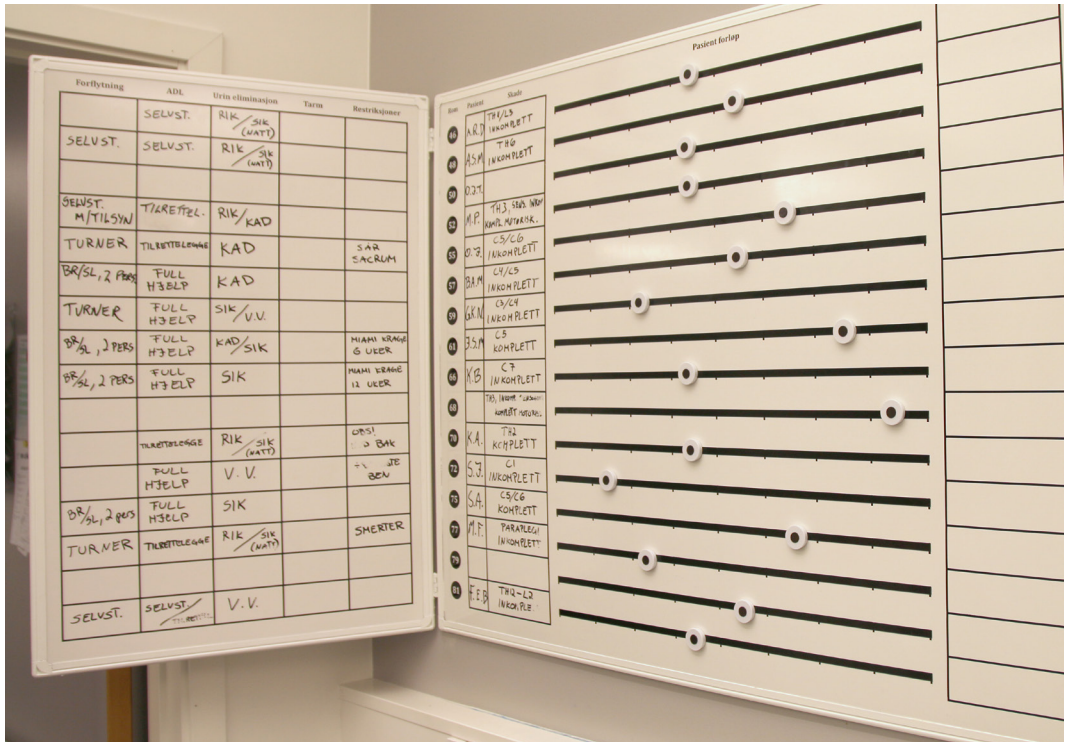 Forflytning ADL Urin eliminasjon Tarm Restriksjoner
SELVST. RIK/SIK
(NATT)
SELVST. SELVST. RIK/SIK
(NATT)
SELVST.
M/TILSYN TILRETTEL. RIK/KAD
TURNER TILRETTELEGGE KAD SÅR
SACRUM
BR/SL, 2 PERS FULL
HJELP KAD
TURNER FULL
HJELP SIK/V.V.
BR/SL, 2 PERS FULL
HJELP KAD/SIK MIAMI KRAGE
6 UKER
BR/SL, 2 PERS FULL
HJELP SIK MIAMI KRAGE
12 UKER
TILRETTELEGGE RIK/SIK
(NATT) OBS!
BAK
FULL
HJELP V.V.
BEN
BR/SL, 2 pers FULL
HJELP SIK
TURNER TILRETTELEGGE RIK/SIK
(NATT) SMERTER
SELVST. SELVST./ V.V.
Rom Pasient Skade Pasient forløp
46 A.R.D TH4/L3
INKOMPLETT
48 A.S.M TH6
INKOMPLETT
50 O.J.T.
52 M.P. TH3, SENS. INKOM
KOMPL. MOTORISK.
55 O.J. C5/C6
INKOMPLETT
57 B.A.M C4/C5
INKOMPLETT
59 G.K.N C3/C4
INKOMPLETT
61 J.S.M C5
KOMPLETT
66 K.B C7
INKOMPLETT
68 TH3,
KOMPLETT
70 K.A. TH2
KOMPLETT
72 S.J. C1
INKOMPLETT
75 S.A. C5/C6
KOMPLETT
77 M.F. PARAPLEGI
INKOMPLETT
79
81 F.E.B TH12-L2
INKOMPLE